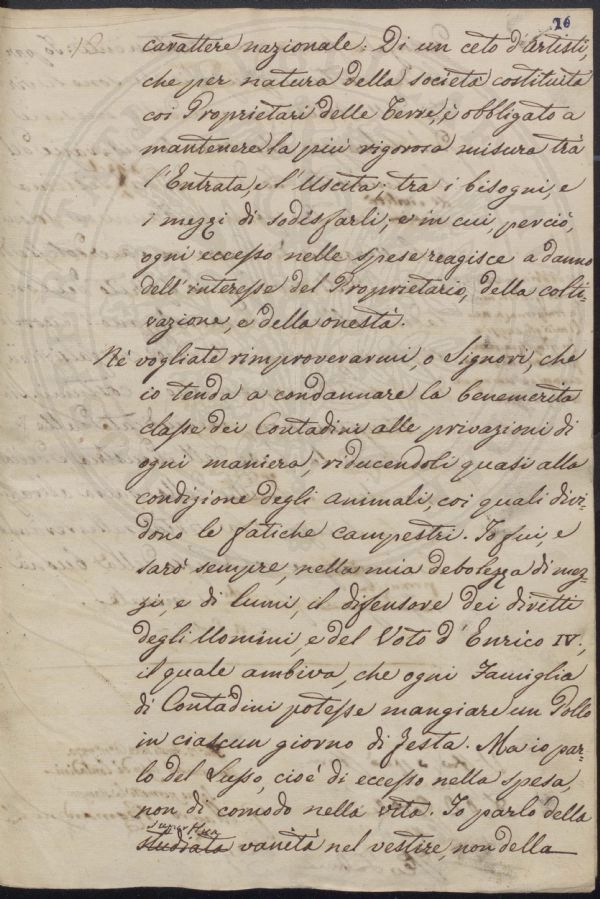 16
carattere nazionale: Di un ceto d'artisti,
che per natura della società costituita
coi Proprietari delle Terre, è obbligato a
mantenere la più rigorosa misura trà
l'Entrata, e l'Uscita; tra i bisogni, e
i mezzi di sodisfarli, e in cui perciò,
ogni eccesso nelle spese reagisce a danno
dell'interesse del Proprietario, della colti-
vazione, e della onestà.
Nè vogliate rimproverarmi, o Signori, che
io tenda a condannare la benemerita
classe dei Contadini alle privazioni di
ogni maniera, riducendoli quasi alla
condizione degli animali, coi quali divi-
dono le fatiche campestri. Io fui, e
sarò sempre, nella mia debolezza di mez-
zi, e di lumi, il difensore dei diritti
degli Uomini, e del Voto d'Enrico IV.,
il quale ambiva, che ogni Famiglia
di Contadini potesse mangiare un Pollo
in ciascun giorno di festa. Ma io par-
lo del Lusso, cioè di eccesso nella spesa,
non di comodo nella vita. Io parlo della
superflua
studiata vanità nel vestire, non della